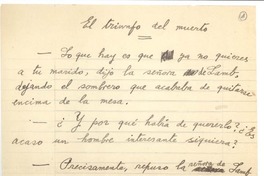 El triunfo del muerto
— Lo que hay es que ya no quieres
a tu marido, dijo la señora de Lamb,
dejando el sombrero que acababa de quitarse
encima de la mesa.
— ¿Y por qué había de quererlo? ¿Es
acaso un hombre interesante siquiera?
— Precisamente, repuso la señora de Lamb.